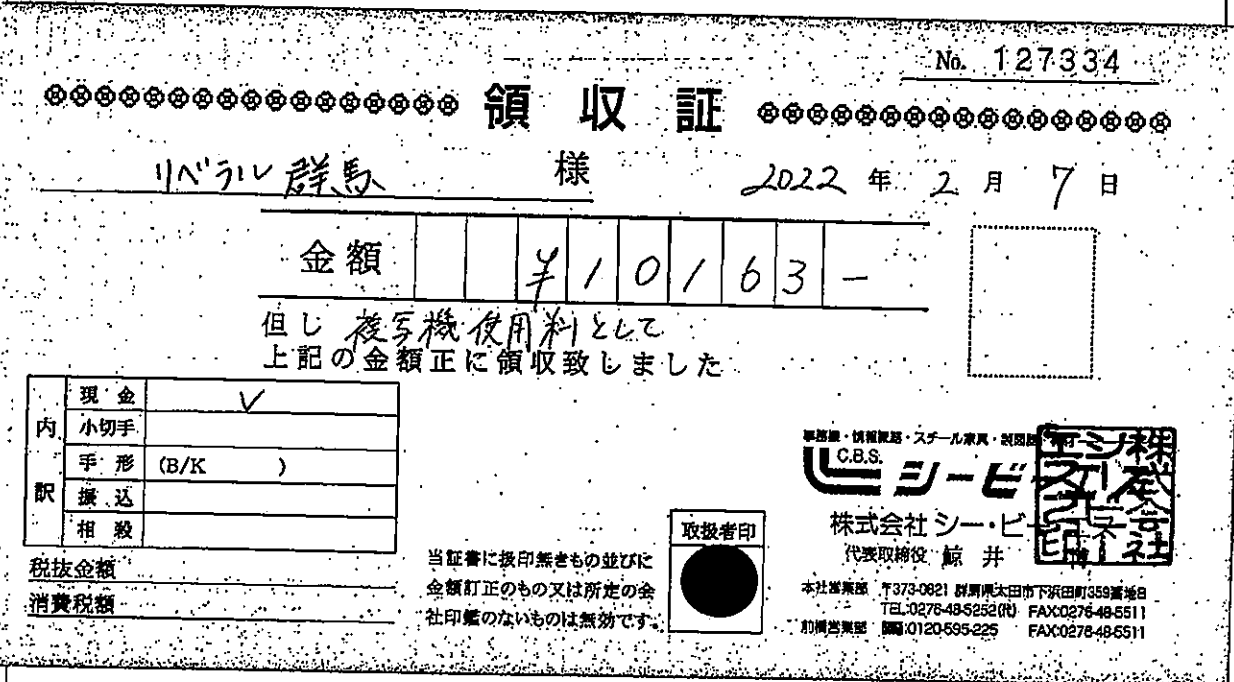 No. 127334
領収証
リベラル群馬 様
2022年2月7日
金額 ¥10163-
但し 複写機使用料として
上記の金額正に領収致しました
内訳
現金 ✓
小切手
手形 (B/K )
振込
相殺
税抜金額
消費税額
当証書に扱印無きもの並びに
金額訂正のもの又は所定の会
社印鑑のないものは無効です。
取扱者印
C.B.S.
シービー
株式会社 シー・ビー・エス
代表取締役 鯨井 博
本社営業部 〒373-0821 群馬県太田市下浜田町359番地8
TEL:0276-48-5252(代) FAX:0276-48-5511
前橋営業部 :0120-595-225 FAX:0276-48-5511